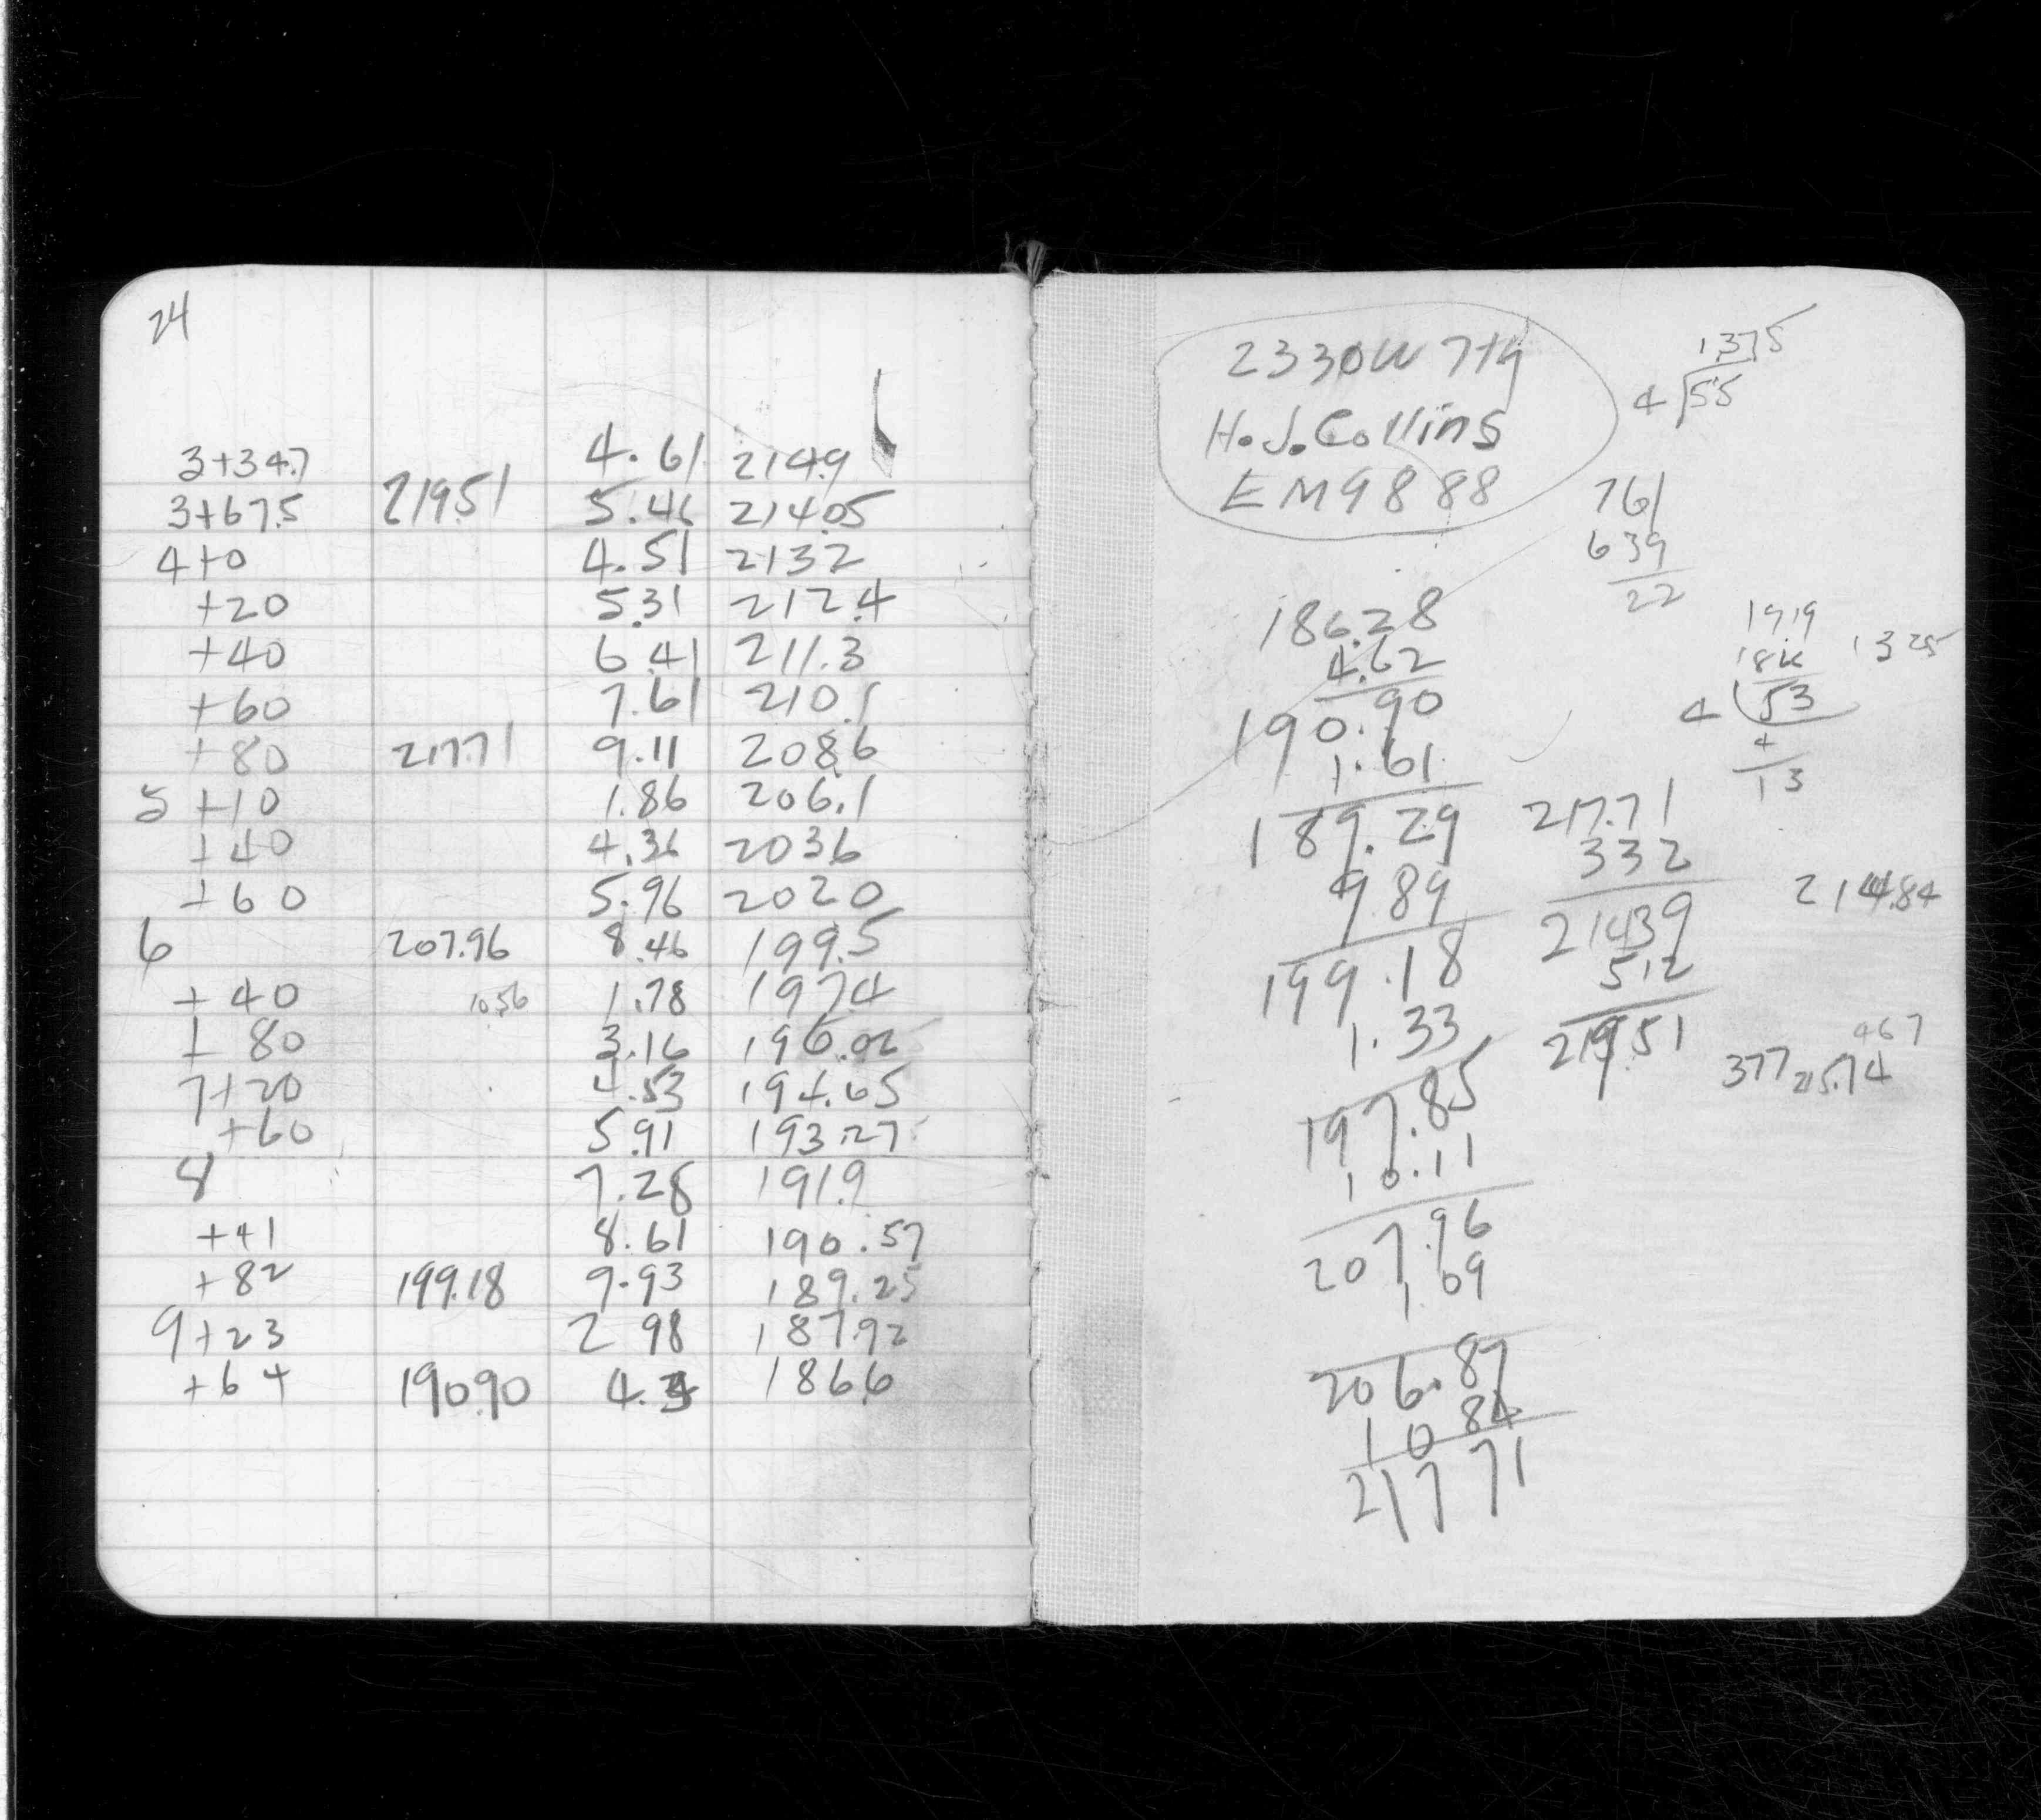 24
3+34.7 4.61 214.9
3+67.5 219.51 5.46 214.05
4+0 4.51 213.2
+20 5.31 212.4
+40 6.41 211.3
+60 7.61 210.1
+80 217.71 9.11 208.6
5 +10 1.86 206.1
+40 4.36 203.6
+60 5.96 202.0
6 207.96 8.46 199.5
+ 40 10.56 1.78 197.4
+ 80 3.16 196.02
7+20 4.53 194.65
+60 5.91 193.27
8 7.28 191.9
+41 8.61 190.57
+82 199.18 9.93 189.25
9+23 2 98 187.92
+64 190.90 4.3 186.6
2330W 7th
H.J.Collins
EM9888
1375
4 55
761
639
22
186.28
4.62
190.90
1.61
189.29
9.89
199.18
1.33
197.85
10.11
207.96
1.09
206.87
10 84
217 71
1919
1325
4 53
4
13
217.71
332
214.39
5.12
219.51
214.84
467
377 215.74